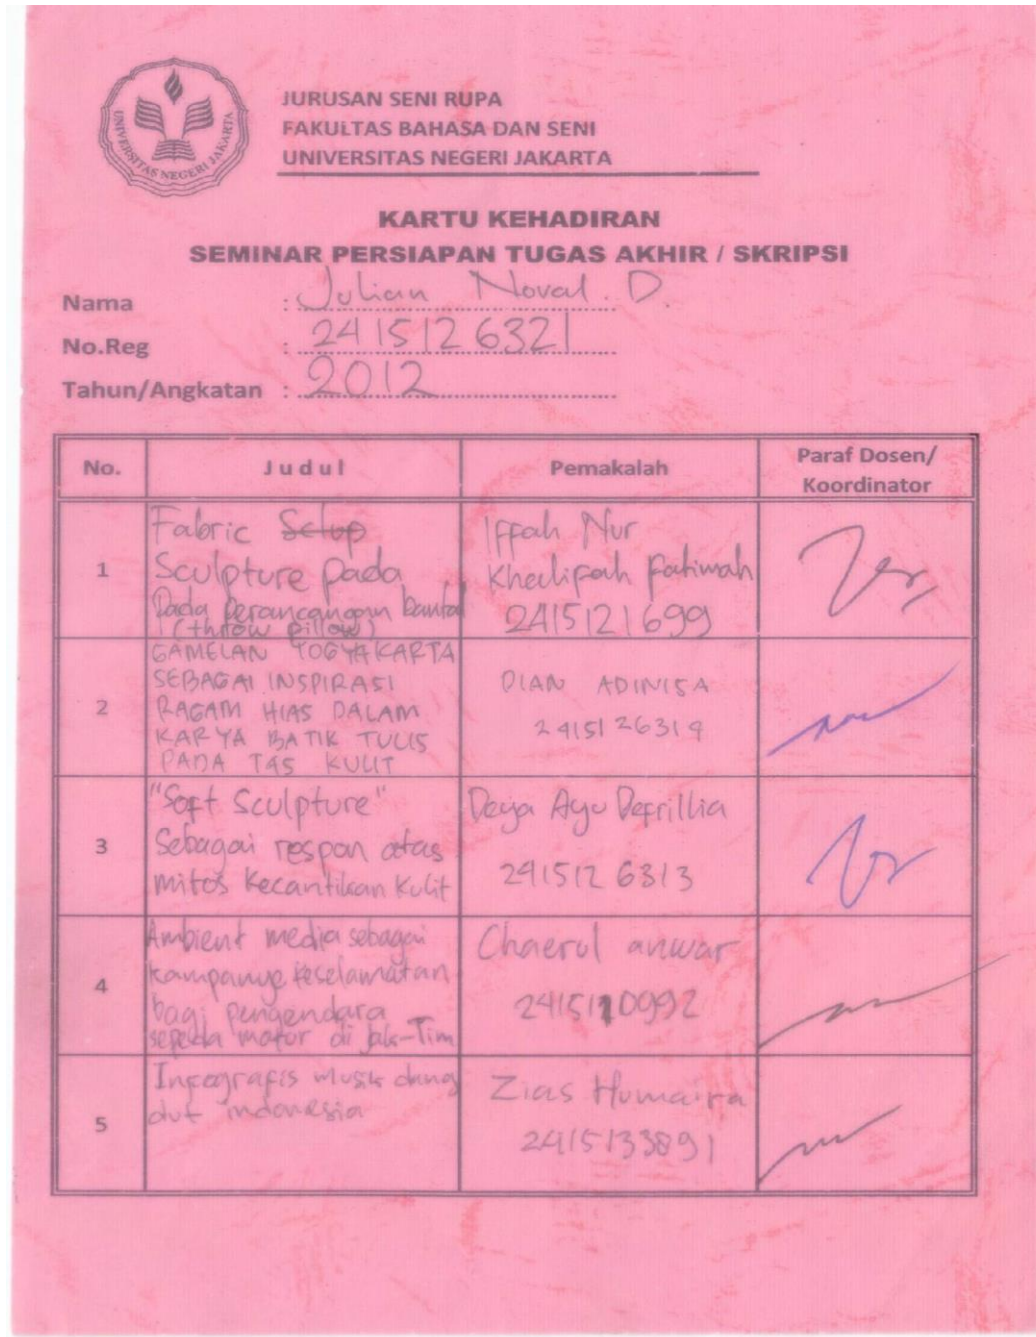 UNIVERSITAS NEGERI JAKARTA
JURUSAN SENI RUPA
FAKULTAS BAHASA DAN SENI
UNIVERSITAS NEGERI JAKARTA
KARTU KEHADIRAN
SEMINAR PERSIAPAN TUGAS AKHIR / SKRIPSI
Nama : Julian Noval. D.
No.Reg : 2415126321
Tahun/Angkatan : 2012
No. Judul Pemakalah Paraf Dosen/
Koordinator
1
Fabric
Sculpture pada
Pada perancangan bantal
(throw pillow)
Iffah Nur
Khalifah Fatimah
2415121699
2
GAMELAN YOGYAKARTA
SEBAGAI INSPIRASI
RAGAM HIAS DALAM
KARYA BATIK TULIS
PADA TAS KULIT
DIAN ADINISA
2415126319
3
"Soft Sculpture"
Sebagai respon atas
mitos Kecantikan Kulit
Ayu Defrillia
2415126313
4
Ambient media sebagai
kampanye keselamatan
bagi pengendara
sepeda motor di Jak-Tim
Chaerul anwar
2415110992
5
Infografis musik dang
dut indonesia
Zias Humaira
2415133891